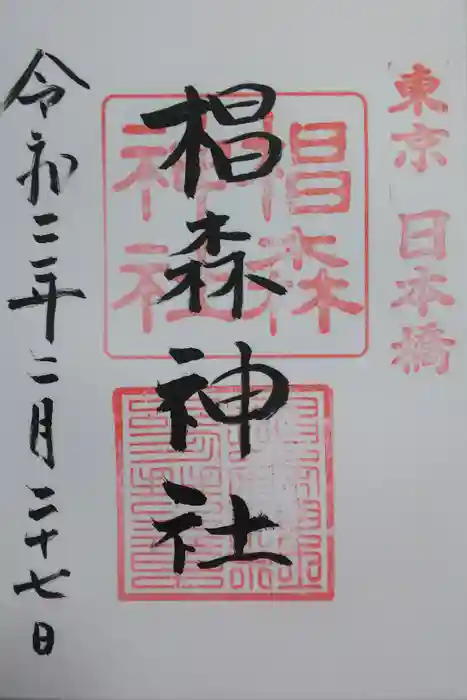 東京 日本橋
椙森神社
椙森神社
令和三年二月二十七日